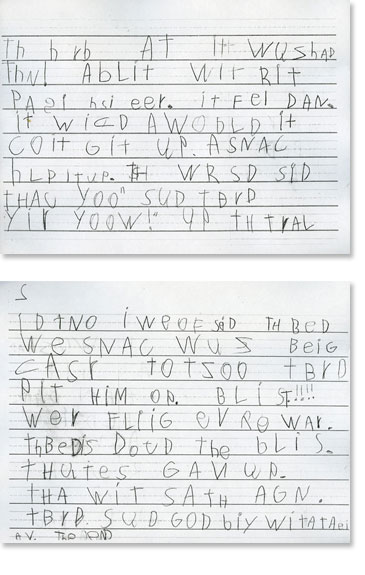 Th brb AT it WUSHAD
THN! ABLit Wit Rit
PAEI hsi eer. it FEI DAN.
it WICD AWOBLD it
COIT Git UP. ASNAC
hLP itUP. TH WRSD SID
tHAC YOO" SUD tBRD
YIR YOOW!" UP tH tRAL
S
IDTNO i WEOE SaiD TH BED
We SNAC WUS BEIG
CASr TOTSOO tBRD
Pit HiM OP. BLISE!!!!
Wer FLIIG eVRe WAr.
thBeDIS DOUD the bLIS.
tHUteS GAV UP.
tHA Wit SATH AGN.
tBRD SUD GOD bIY WitAtAei
AV. The END